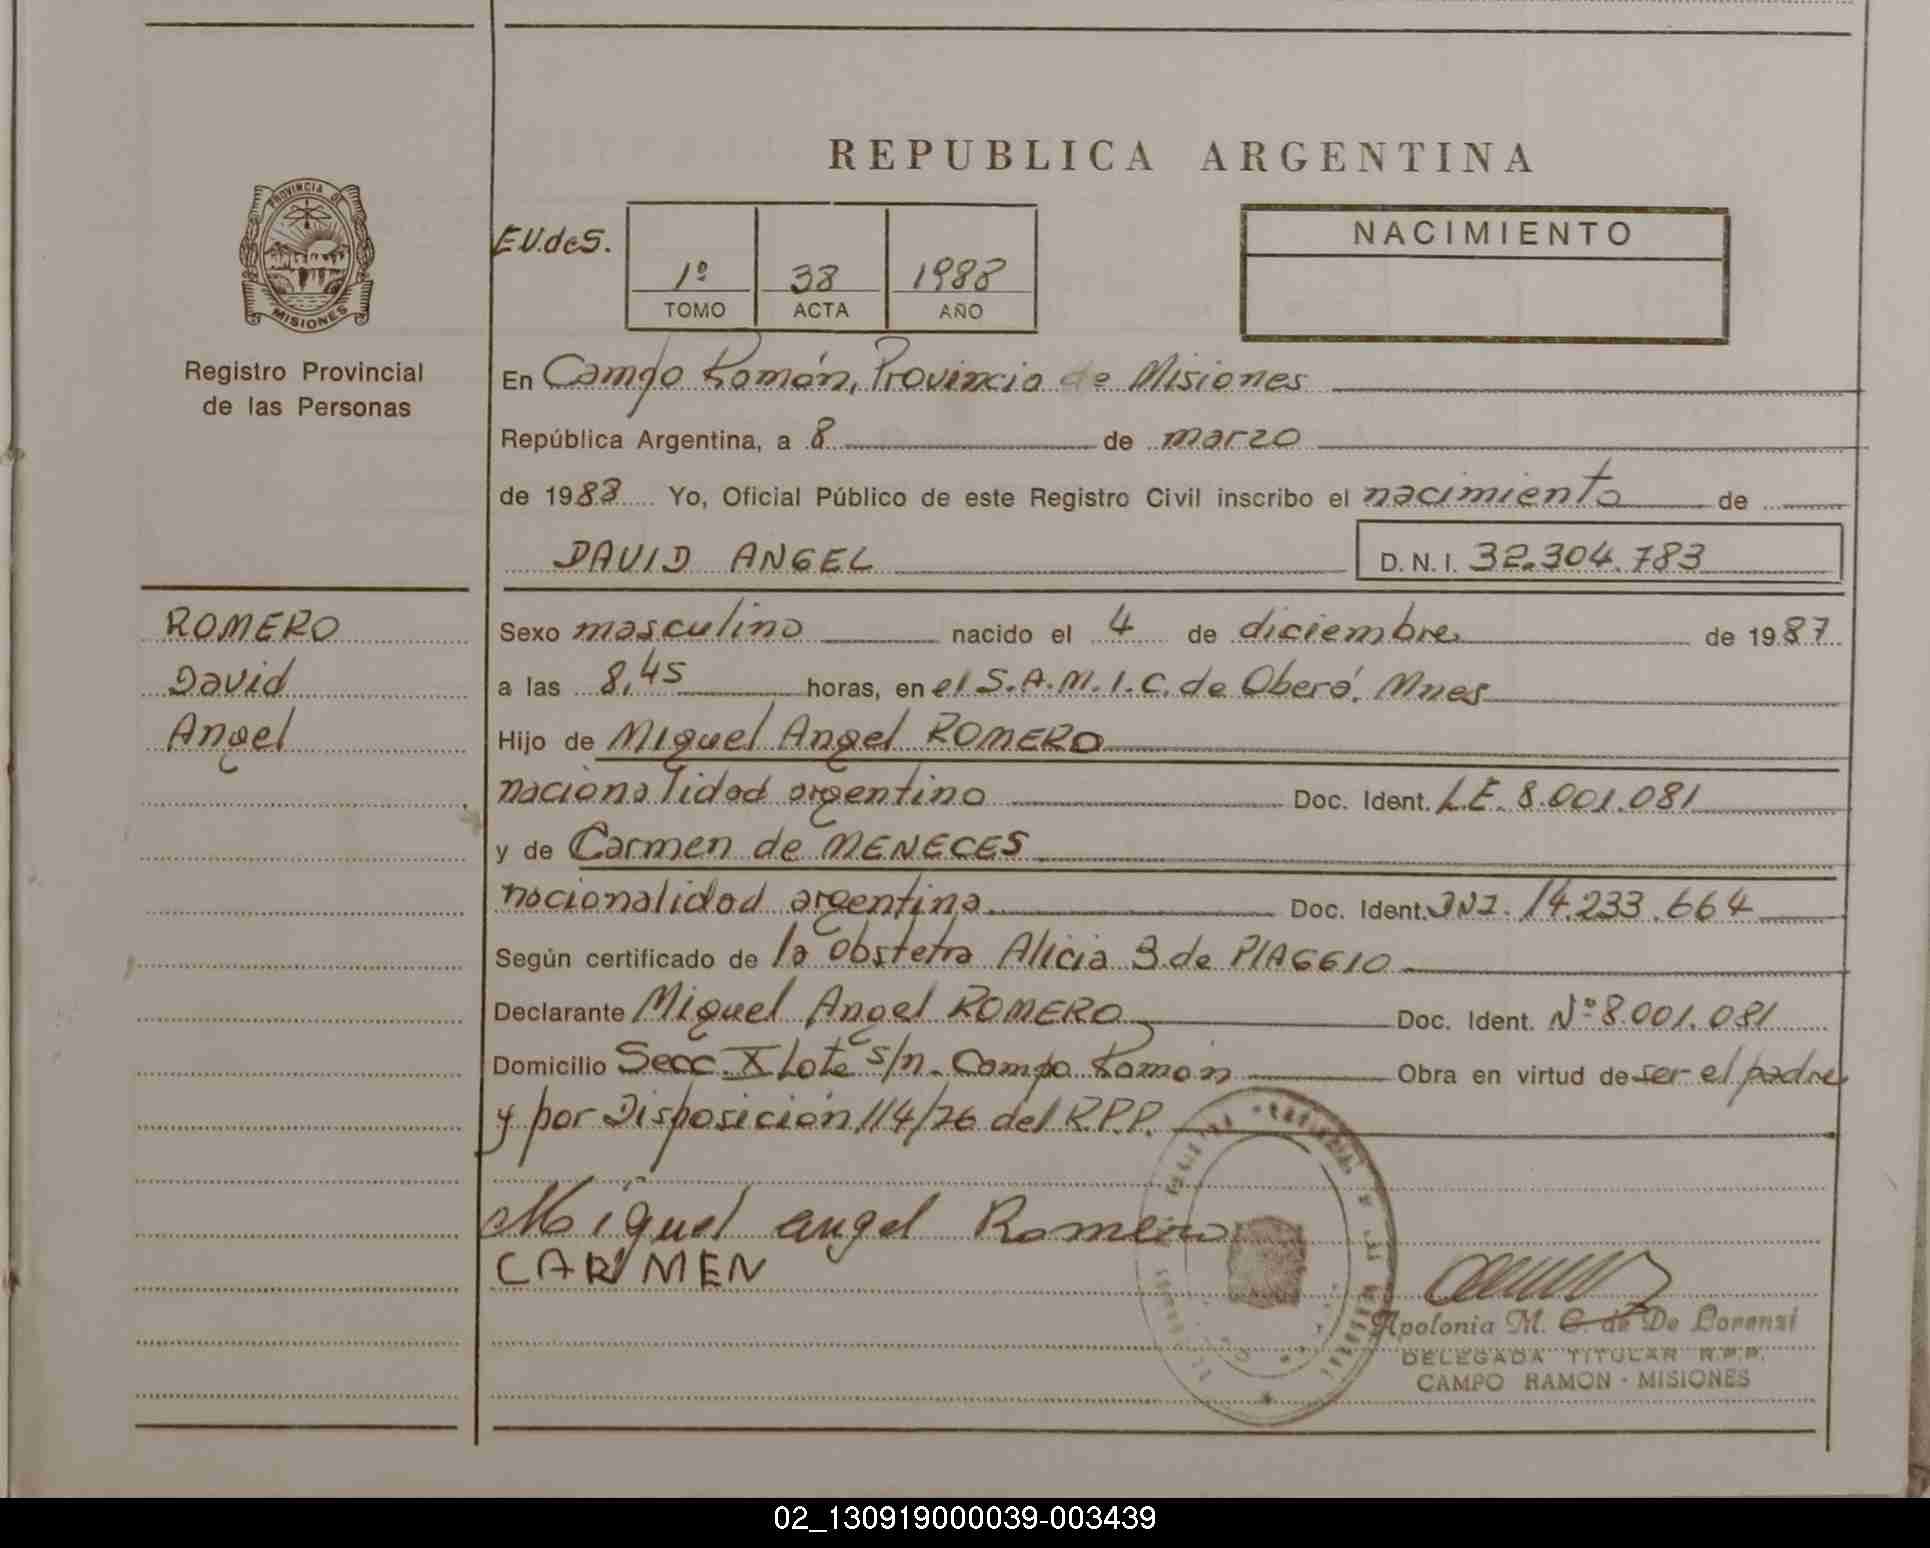 REPUBLICA ARGENTINA
PROVINCIA DE
MISIONES
Registro Provincial
de las Personas
E.V.deS.
1º 38 1988
TOMO ACTA AÑO
NACIMIENTO
En Campo Ramón, Provincia de Misiones
República Argentina, a 8 de marzo
de 1988 Yo, Oficial Público de este Registro Civil inscribo el nacimiento de
DAVID ANGEL D.N.I. 32.304.783
ROMERO
David
Angel
Sexo masculino nacido el 4 de diciembre de 1987
a las 8,45 horas, en el S.A.M.I.C. de Oberá. Mnes
Hijo de Miguel Angel ROMERO
nacionalidad argentino Doc. Ident. L.E. 8.001.081
y de Carmen de MENECES
nacionalidad argentina Doc. Ident. DNI. 14.233.664
Según certificado de la obstetra Alicia B de PIAGGIO
Declarante Miguel Angel ROMERO Doc. Ident. Nº 8.001.081
Domicilio Secc. X Lote s/n. Campo Ramón Obra en virtud de ser el padre
y por Disposición 114/76 del R.P.P.
Miguel angel Romero
CARMEN
Apolonia M. C. de De Lorenzi
DELEGADA TITULAR R.P.P.
CAMPO RAMON - MISIONES
02_130919000039-003439